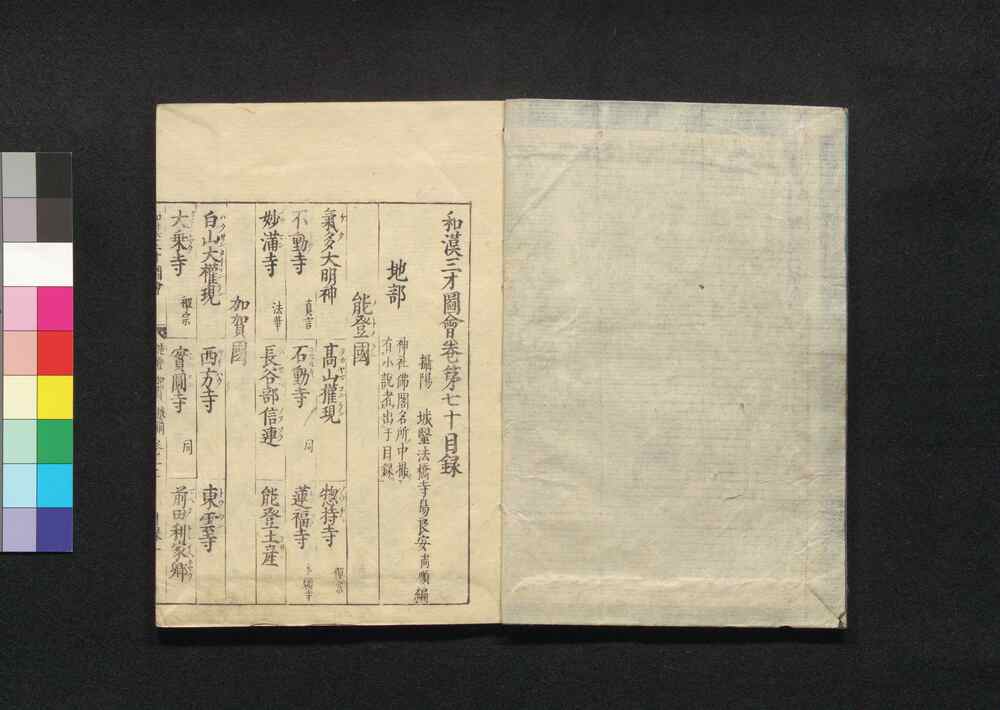 和漢三才圖會卷第七十目録
攝陽 城醫法橋寺島良安尚順編
地部
神社佛閣名所中撮
有小説者出于目録
能登國
氣多大明神 高山權現 惣持寺 禪宗
不動寺 真言 石動寺 同 蓮福寺
妙滿寺 法華 長谷部信連 能登土産
加賀國
白山大權現 西方寺 東雲寺
大乘寺 禪宗 寶圓寺 同 前田利家卿